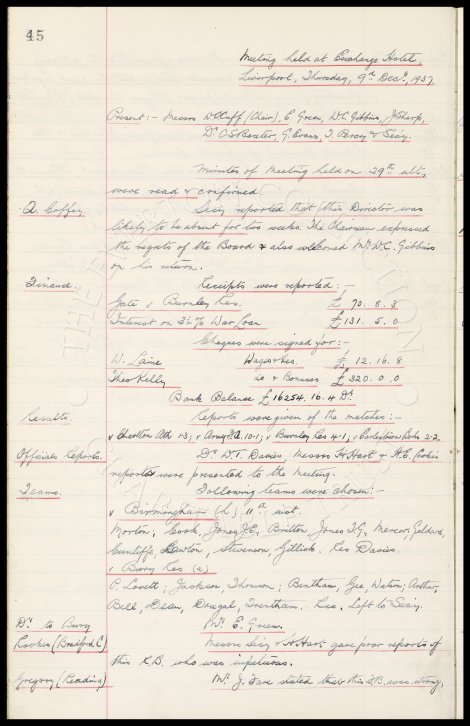 45
Meeting held at Exchange Hotel,
Liverpool, Thursday, 9th Decr, 1937
Present:- Messrs W.C. Cuff (Chair), E. Green, W.C. Gibbins, J. Sharp,
Dr C.S. Baxter, G. Evans, T. Percy & Secy.
Minutes of Meeting held on 29th ult,
were read & confirmed.
A. Coffey. Secy reported that this Director was
likely to be absent for two weeks. The Chairman expressed
the regrets of the Board & also welcomed Mr W.C. Gibbins
on his return.
Finance. Receipts were reported:-
Gate v Burnley Res. £ 70. 8. 3
Interest on 3½% War Loan £131. 5. 0
Cheques were signed for:-
W. Laine Wages &c £ 12. 16. 8
Theo Kelly do & Bonuses £320. 0. 0
Bank Balance £16254. 16. 4 Dr
Results. Reports were given of the matches:-
v Charlton Ath 1-3; v Army 10-1; v Burnley Res 4-1; v 2-2.
Officials Reports. Dr W.T. Davies, Messrs H. Hart & H.E. Cookin
reports were presented to the meeting.
Teams. Following teams were chosen:-
v Birmingham (h) 11th inst.
Morton; Cook, Jones J.E.; Britton, Jones T.G., Mercer; Geldard,
Cunliffe, Lawton, Stevenson, Gillick. Res Davies.
v Bury Res (a)
P. Lovett; Jackson, Thomson; Bentham, Gee, Watson; Arthur,
Bell, Dean, Dougal, Trentham. Res. Left to Secy.
Dr. to Bury Mr. E. Green.
Rookes (Bradford C). Messrs Secy & H. Hart gave poor reports of
this R.B. who was impetuous.
Gregory (Reading) Mr. J. Fare stated that this I.B. was strong,